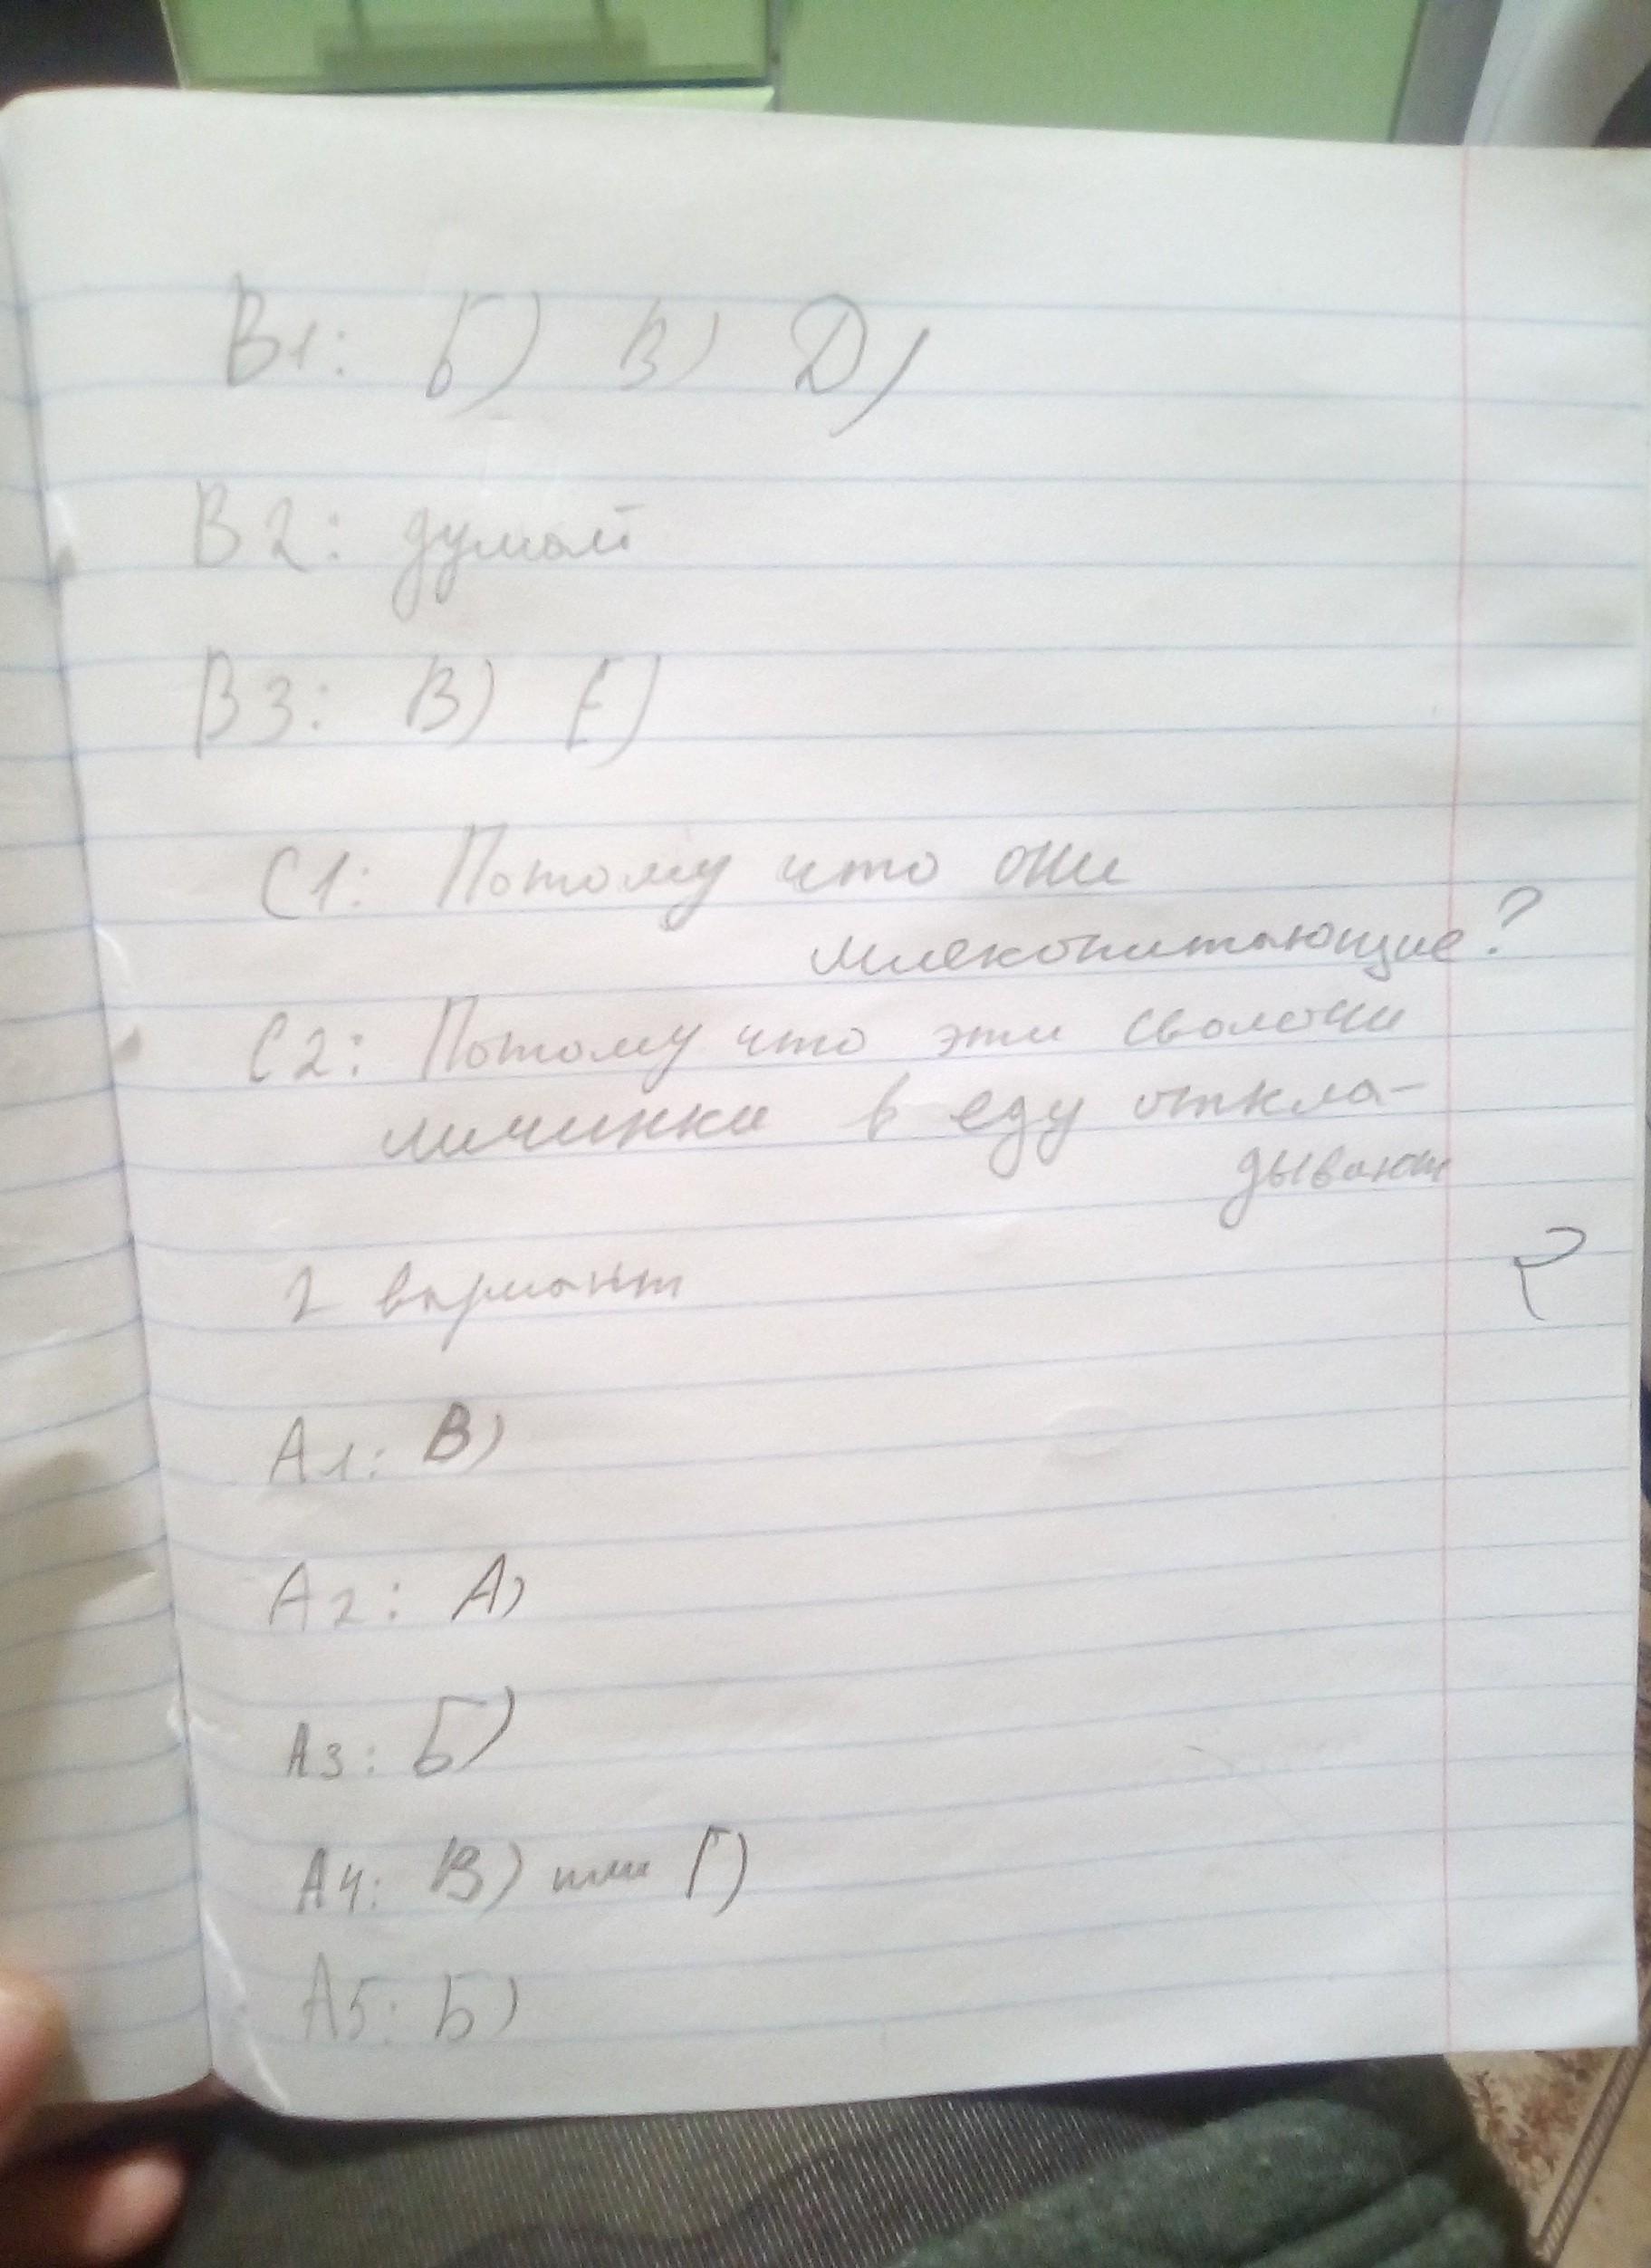 В1: Б) В) D)
В2: думай
В3: В) Е)
С1: Потому что они
млекопитающие?
С2: Потому что эти сволочи
личинки в еду откла-
дывают
2 вариант
А1: В)
А2: А)
А3: Б)
А4: В) или Г)
А5: Б)